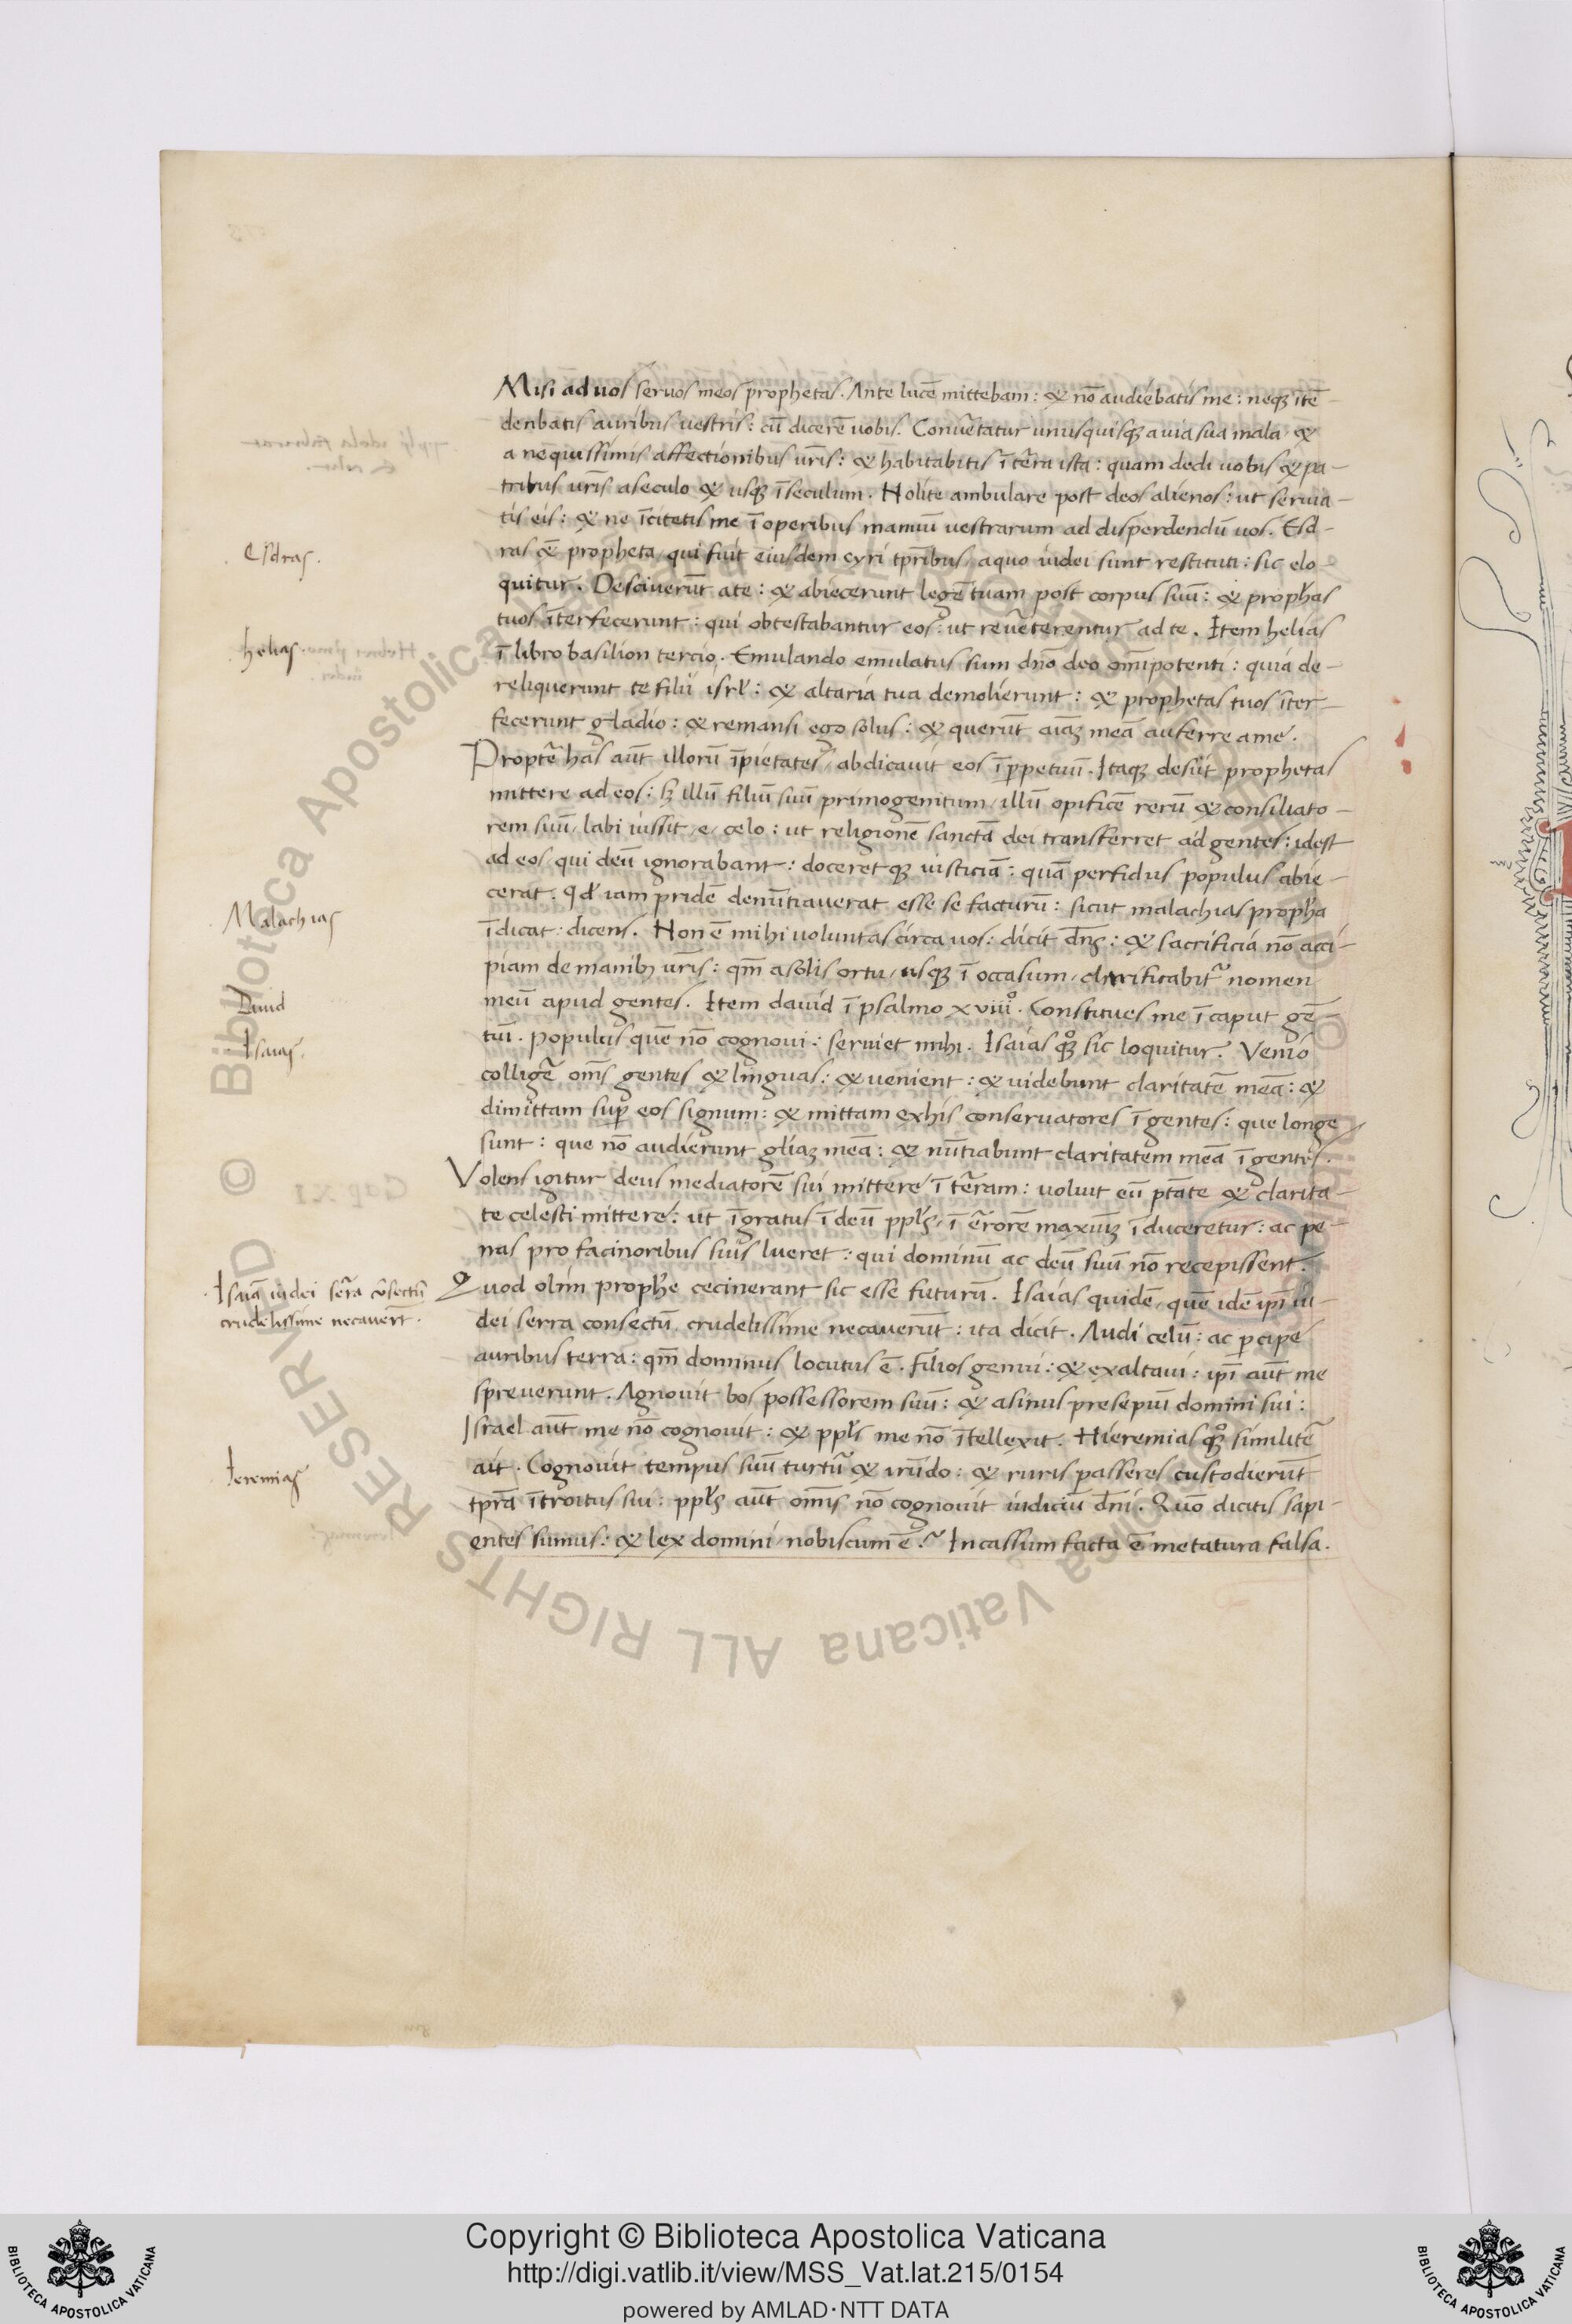 Misi ad uos seruos meos prophetas. Ante lucē mittebam: & nō audiebatis me: neqꝫ ītē-
debatis auribus uestris: cū dicerē uobis. Conūtatur unusquisqꝫ a uia sua mala, &
a nequissimis affectionibus ur̄is: & habitabitis ī tēra ista: quam dedi uobis & pa-
tribus ur̄is a seculo & usqꝫ ī seculum. Nolite ambulare post deos alienos: ut seruia-
tis eis: & ne īcitetis me ī operibus manuū uestrarum ad disperdendū uos. Esd-
ras &̄ propheta, qui fuit eiusdem cyri tp̄ribus, a quo iudei sunt restituti: sic elo-
quitur. Desciuerūt a te: & abiecerunt legē tuam post corpus suū: & proph̄as
tuos īterfecerunt: qui obtestabantur eos: ut reuēterentur ad te. Item helias
ī libro basilion tercio. Emulando emulatus sum dn̄o deo om̄ipotenti: quia de-
reliquerunt te filii isrl̄: & altaria tua demolierunt: & prophetas tuos īter-
fecerunt gladio: & remansi ego solus: & querūt aīaꝫ meā auferre a me.
Proptē has aūt illorū īpietates, abdicauit eos ī ꝑpetuū. Itaqꝫ desiit prophetas
mittere ad eos: sꝫ illū filiū suū primogenitum, illū opificē rerū & consiliato-
rem suū, labi iussit, e, celo: ut religionē sanctā dei transferret ad gentes: idest
ad eos, qui deū ignorabant: doceretqꝫ iusticiā: quā perfidus populus abie-
cerat. qđ iam pridē denūtiauerat esse se facturū: sicut malachias proph̄a
īdicat: dicens. Non ē mihi uoluntas circa uos: dicit dn̄s: & sacrificia nō acci-
piam de manibꝫ ur̄is: qm̄ a solis ortu, usqꝫ ī occasum, clarificabit᷑ nomen
meū apud gentes. Item dauid ī psalmo xviiͦ. Constitues me ī caput gē-
tiū. Populus quē nō cognoui: seruiet mihi. Isaias qꝫͦ sic loquitur. Venio
colligē om̄s gentes & linguas: & uenient: & uidebunt claritatē meā: &
dimittam suꝑ eos signum: & mittam ex his conseruatores ī gentes: que longe
sunt: que nō audierunt gl̄iaꝫ meā: & nūtiabunt claritatem meā ī gentes.
Volens igitur deus mediatorē sui mittere ī tēram: uoluit eū ptāte & clarita-
te celesti mittere: ut īgratus ī deū ppl̄s, ī ērorē maxiūꝫ īduceretur: ac pe-
nas pro facinoribus suis lueret: qui dominū ac deū suū nō recepissent.
Quod olim proph̄e cecinerant sic esse futurū. Isaias quidē, quē idē ip̄i iu-
dei serra consectū, crudelissime necauerūt: ita dicit. Audi celū: ac ꝑcipe
auribus terra: qm̄ dominus locutus ē. Filios genui: & exaltaui: ip̄i aūt me
spreuerunt. Agnouit bos possessorem suū: & asinus presepiū domini sui:
Israel aūt me nō cognouit: & ppl̄s me nō ītellexit. Hieremias qꝫͦ similitē
ait. Cognouit tempus suū turtū & irūdo: & ruris passeres custodierūt
tp̄rā ītroitus sui: ppl̄s aūt om̄is nō cognouit iudiciū dn̄i. Quō dicitis sapi-
entes sumus: & lex domini nobiscum ē? In cassum facta ē metatura falsa.
Esdras.
helias.
Malachias
Dauid
Isaias.
Isaiā iudei sēra cōsectū
crudelissime necauerūt.
Ieremias
Copyright © Biblioteca Apostolica Vaticana
http://digi.vatlib.it/view/MSS_Vat.lat.215/0154
powered by AMLAD·NTT DATA
BIBLIOTECA APOSTOLICA VATICANA
BIBLIOTECA APOSTOLICA VATICANA
© Biblioteca Apostolica Vaticana ALL RIGHTS RESERVED